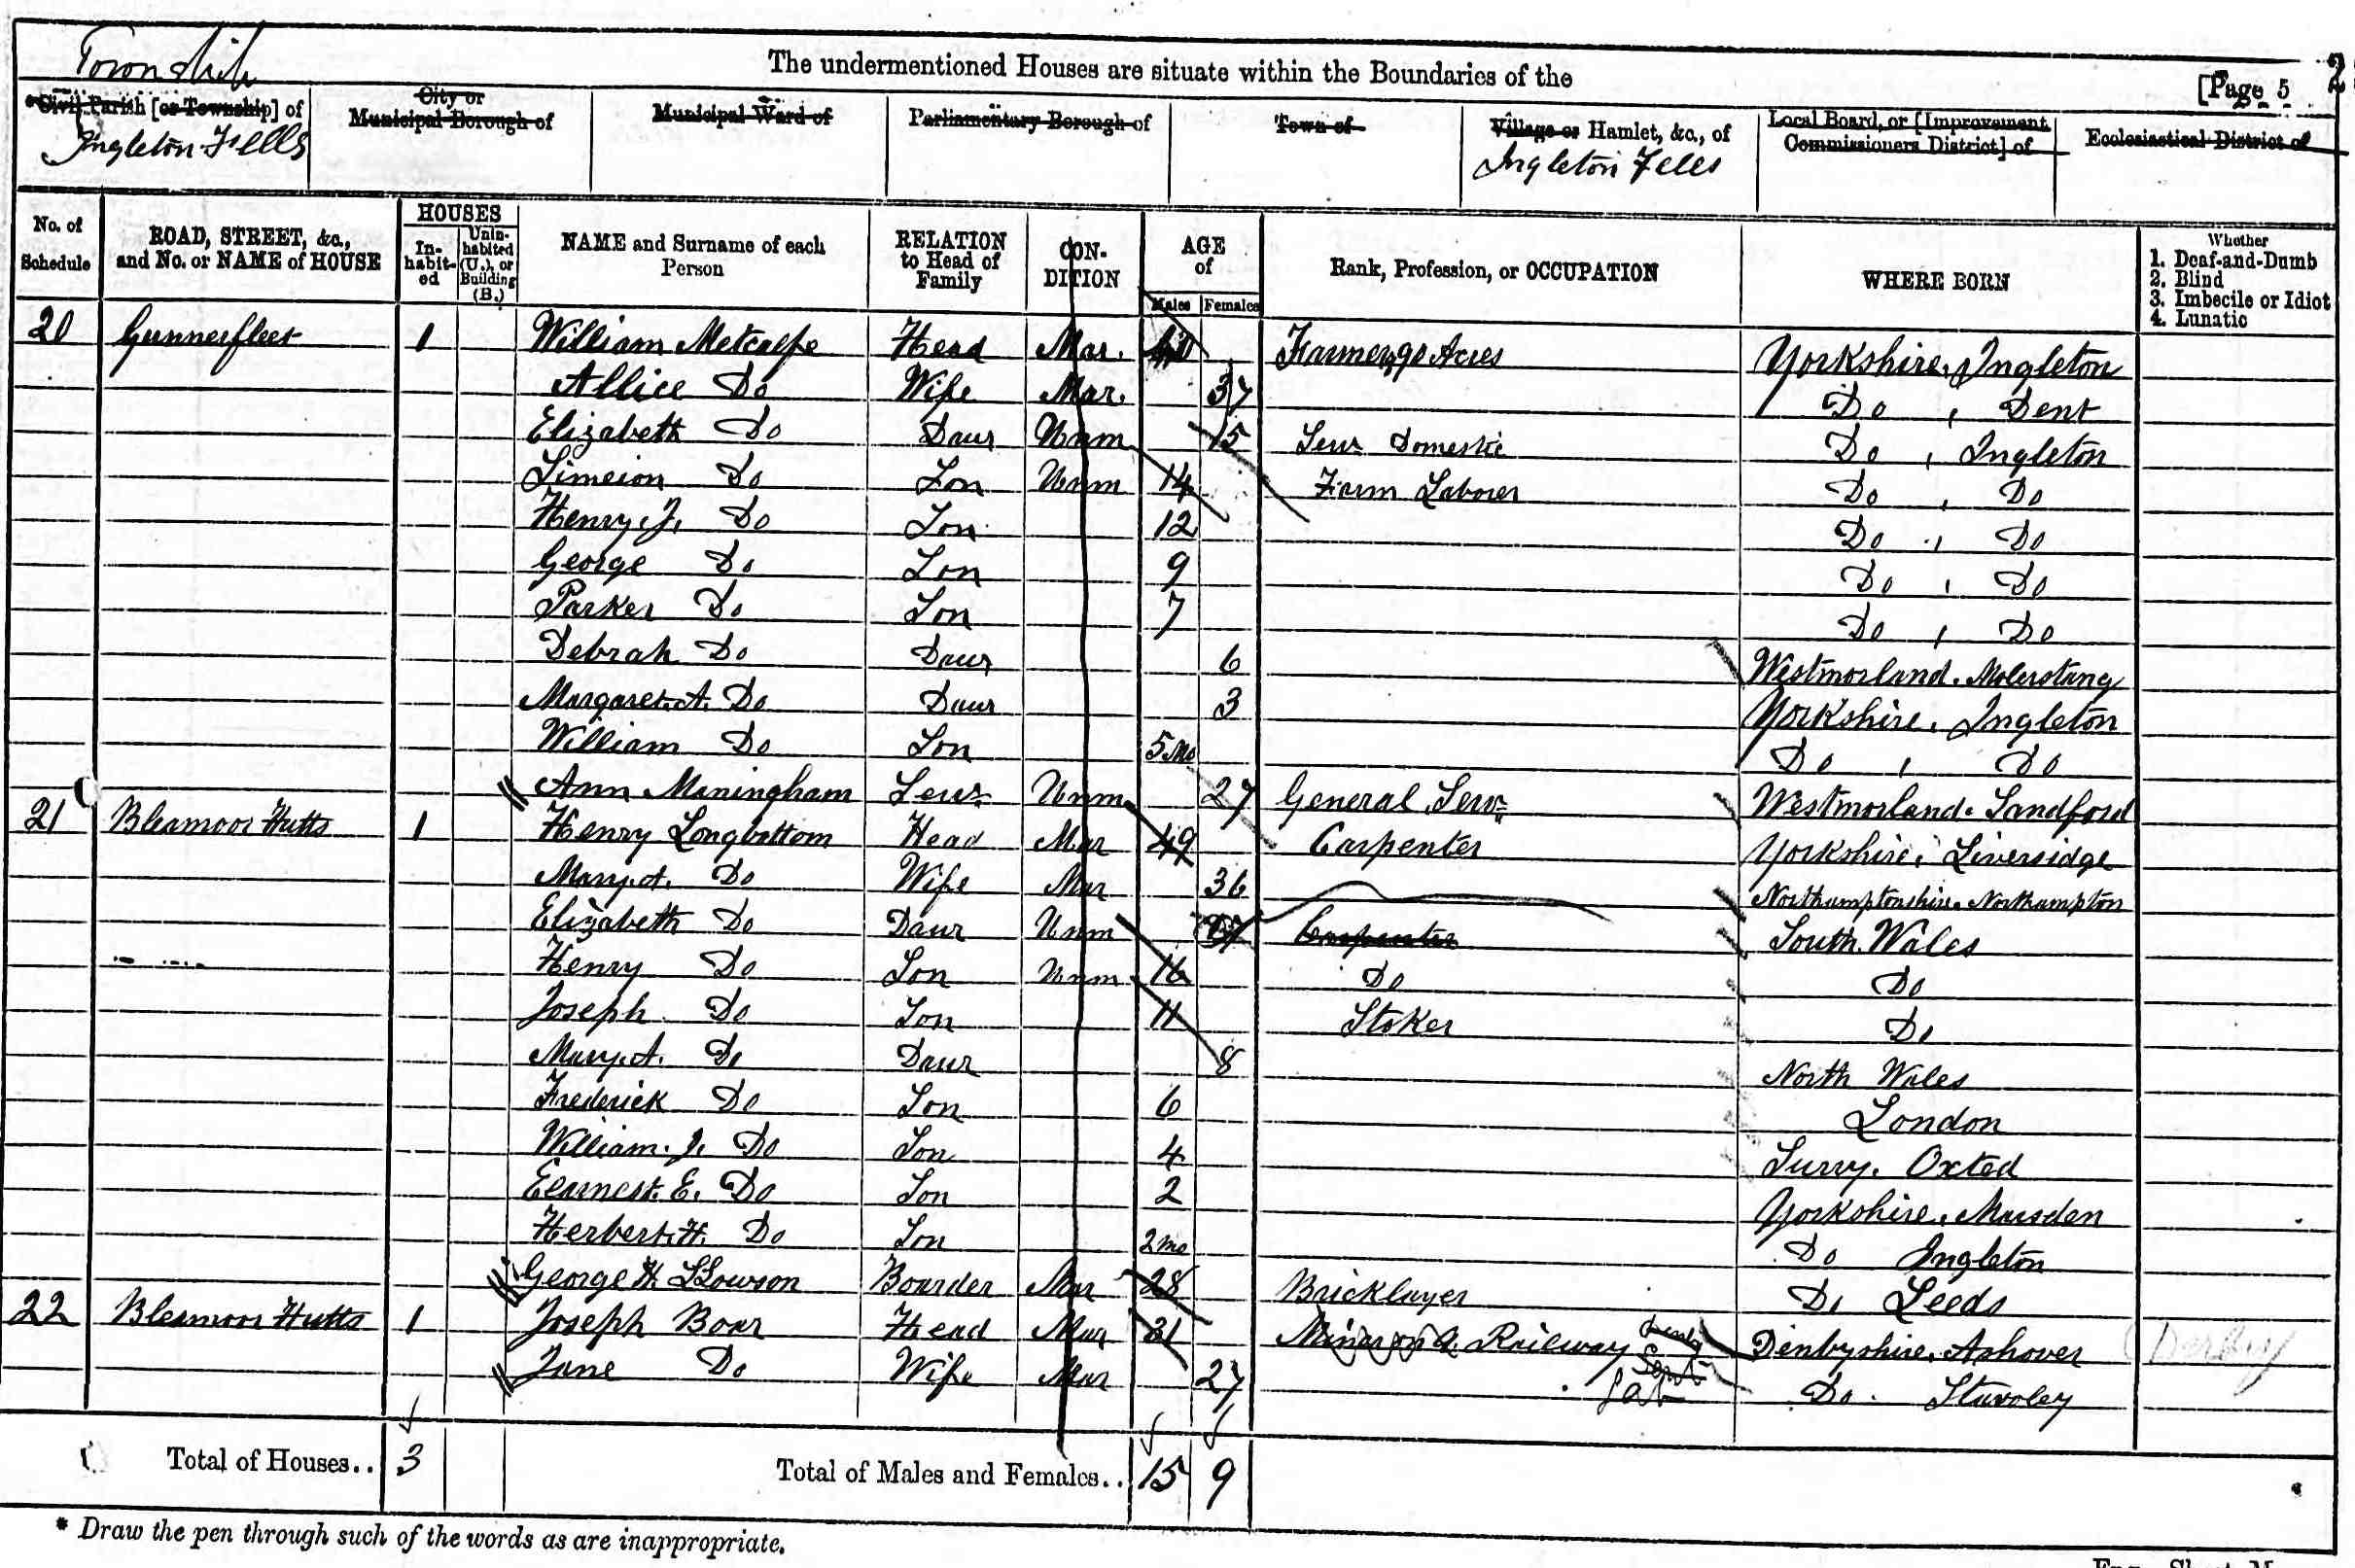 Township
The undermentioned Houses are situate within the Boundaries of the
[Page 5
* Civil Parish [or Township] of
City or Municipal Borough of
Municipal Ward of
Parliamentary Borough of
Town of
Village or Hamlet, &c., of
Local Board, or [Improvement Commissioners District] of
Ecclesiastical District of
Ingleton Fells
Ingleton Fells
No. of Schedule
ROAD, STREET, &c., and No. or NAME of HOUSE
HOUSES
In-habit-ed
Unin-habited (U.), or Building (B.)
NAME and Surname of each Person
RELATION to Head of Family
CON-DITION
AGE of
Males
Females
Rank, Profession, or OCCUPATION
WHERE BORN
Whether
1. Deaf-and-Dumb
2. Blind
3. Imbecile or Idiot
4. Lunatic
20 Gunnerfleet 1 William Metcalfe Head Mar. Farmer, 90 Acres Yorkshire, Ingleton
Allice Do Wife Mar. 37 Do , Dent
Elizabeth Do Daur Unm 15 Serv Domestic Do , Ingleton
Simeion Do Son Unm 14 Farm Laborer Do , Do
Henry. J. Do Son 12 Do , Do
George Do Son 9 Do , Do
Parker Do Son 7 Do , Do
Debrah Do Daur 6 Westmorland. Molerstang
Margaret. A. Do Daur 3 Yorkshire, Ingleton
William Do Son 5 Mo Do , Do
Ann Maningham Serv. Unm 27 General Serv. Westmorland. Sandford
21 Bleamoor Hutts 1 Henry Longbottom Head Mar 49 Carpenter Yorkshire, Liversidge
Mary. A. Do Wife Mar 36 Northamptonshire. Northampton
Elizabeth Do Daur Unm Carpenter South Wales
Henry Do Son Unm 16 Do Do
Joseph Do Son 11 Stoker Do
Mary. A. Do Daur 8 North Wales
Frederick Do Son 6 London
William. J. Do Son 4 Surry. Oxted
Earnest. E. Do Son 2 Yorkshire, Marsden
Herbert. H. Do Son 2 mo Do Ingleton
George H Lowson Boarder Mar 28 Bricklayer Do Leeds
22 Bleamoor Hutts 1 Joseph Boar Head Mar 31 Miner on a Railway Denbyshire, Ashover Derby
Jane Do Wife Mar 27 Do . Staveley
Total of Houses.. 3
Total of Males and Females.. 15 9
* Draw the pen through such of the words as are inappropriate.